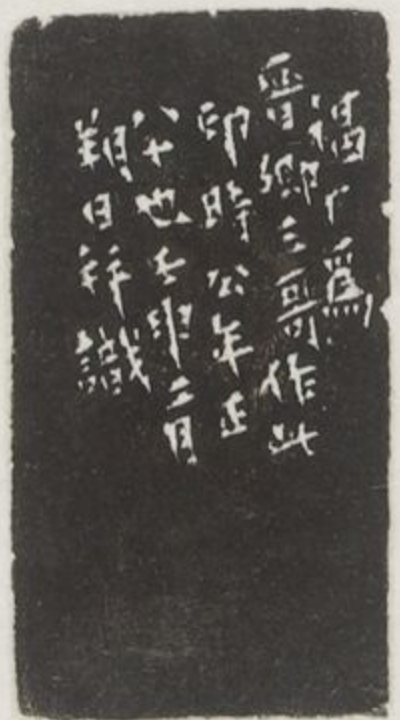 福厂為
晉卿三哥作此
印時公年正
六十也壬申二月
朔日祥識